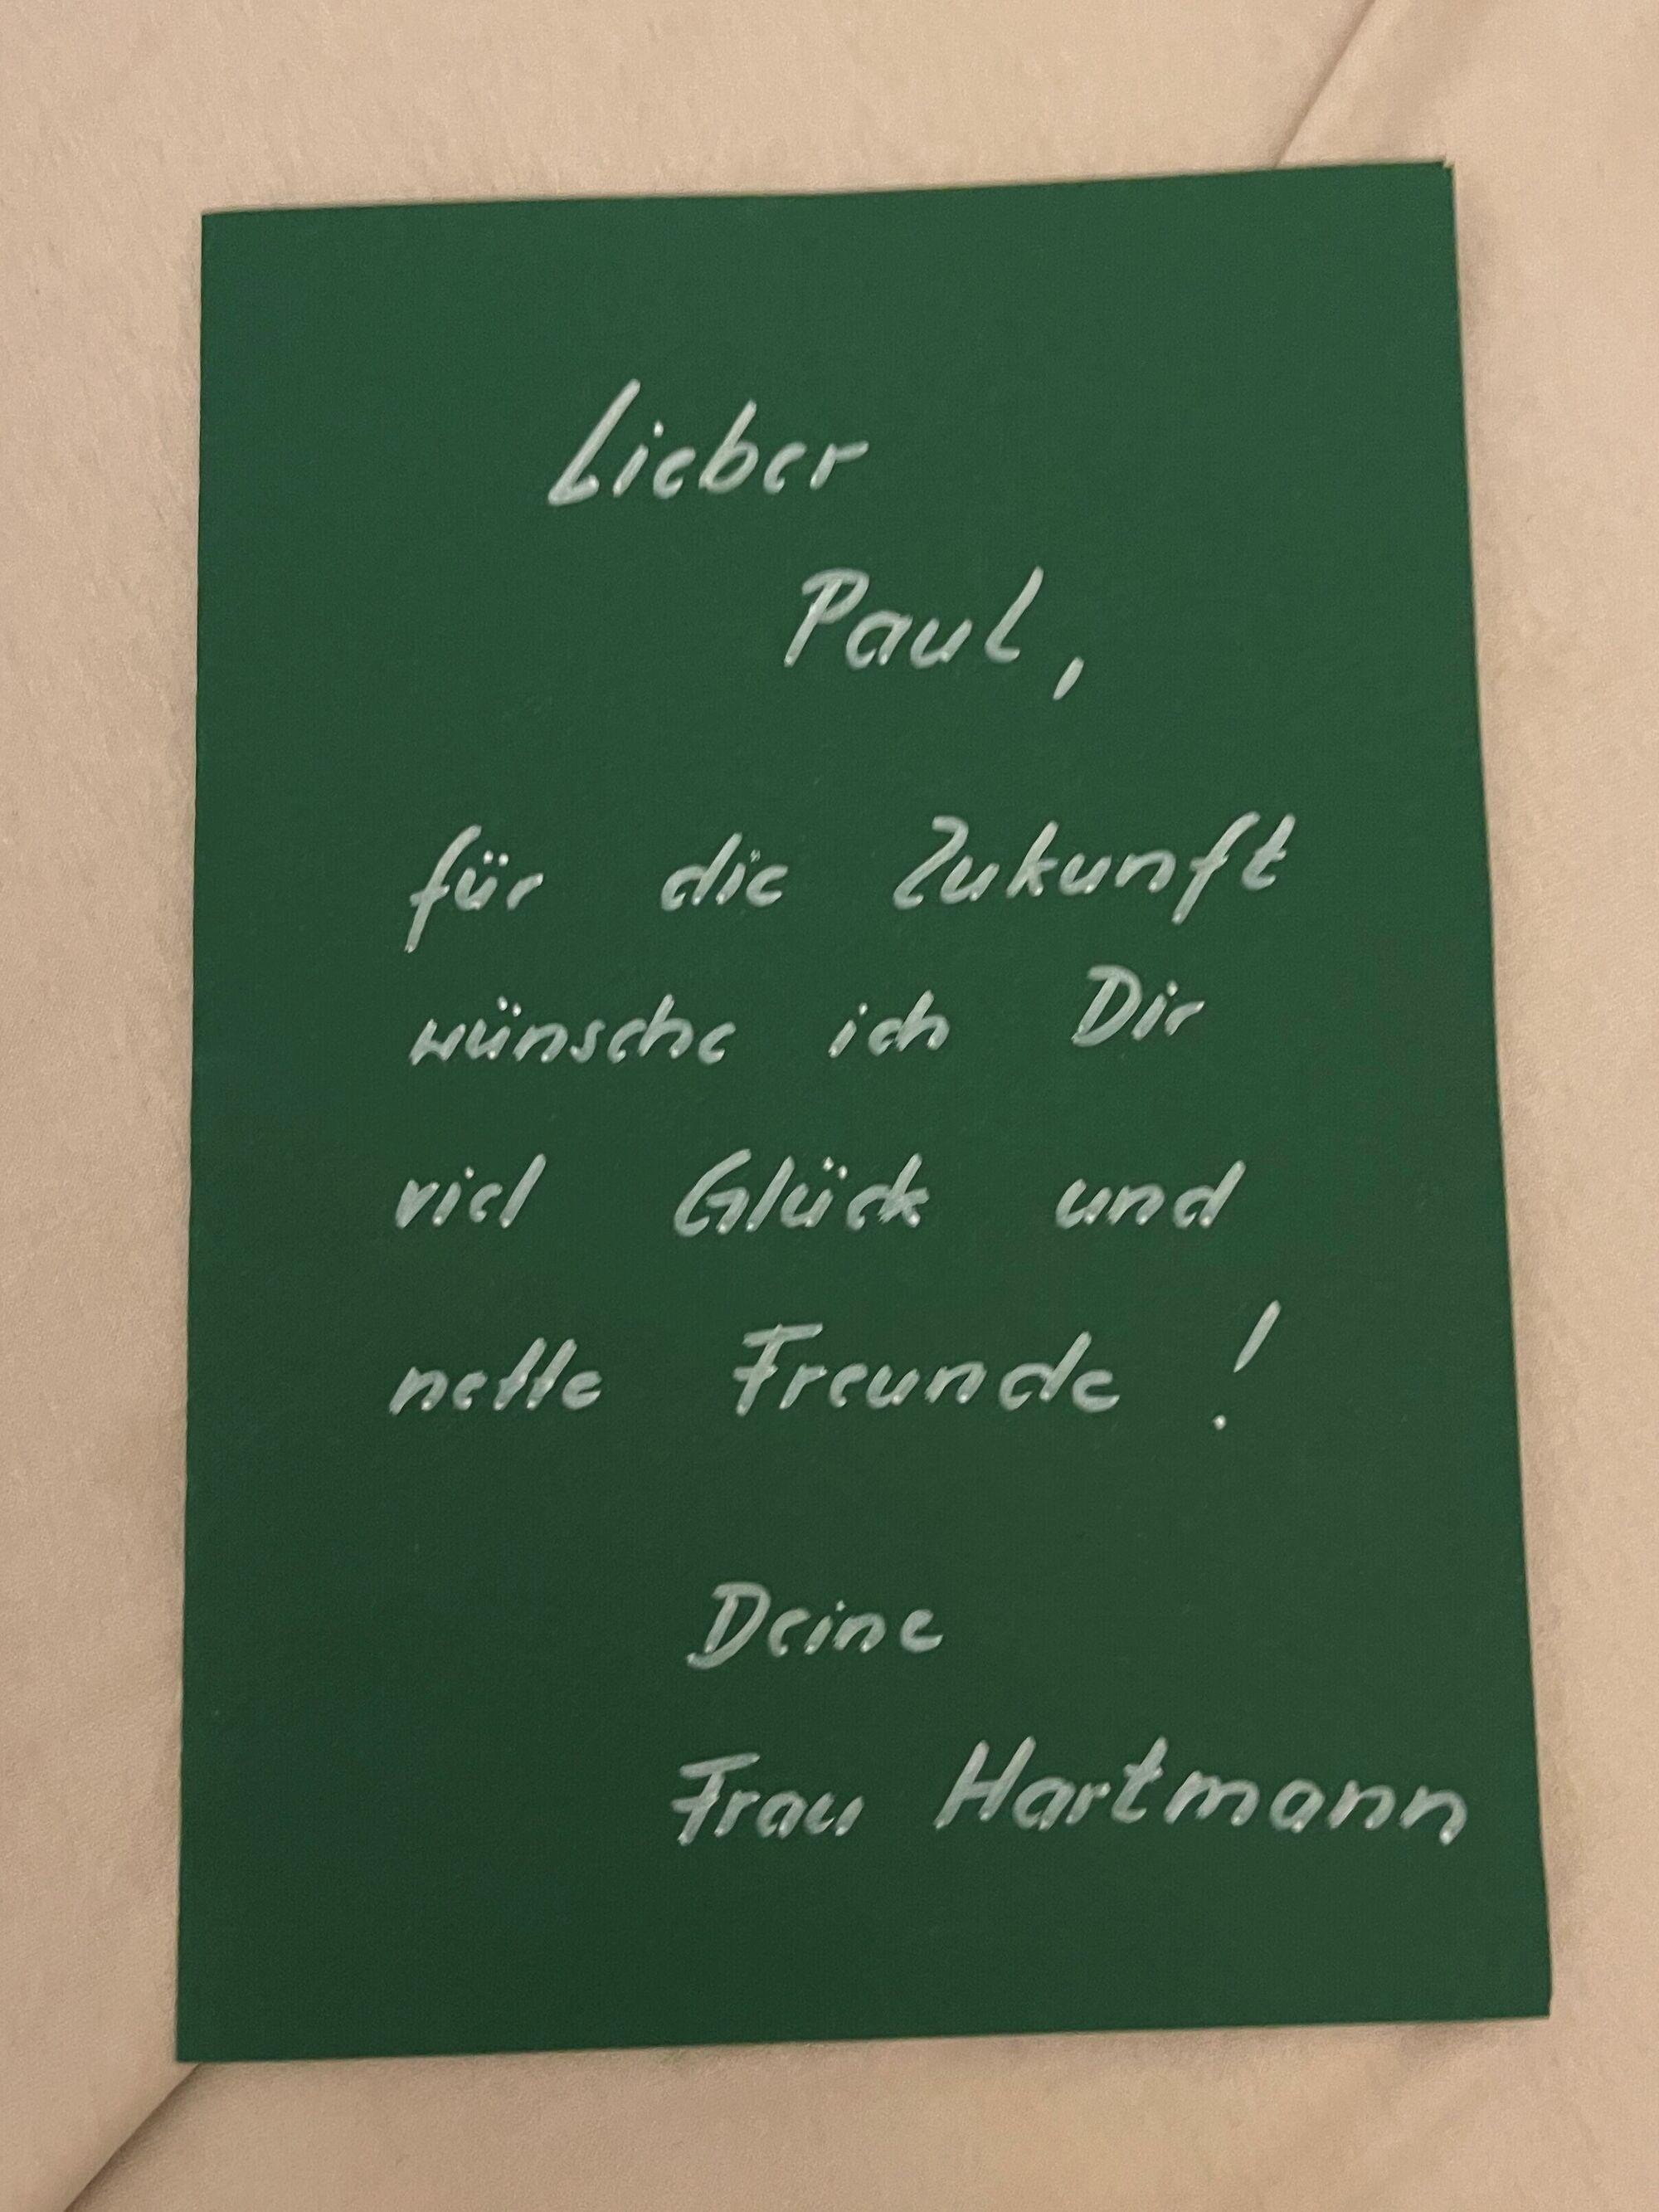 Lieber
Paul,
für die Zukunft
wünsche ich Dir
viel Glück und
nette Freunde!
Deine
Frau Hartmann